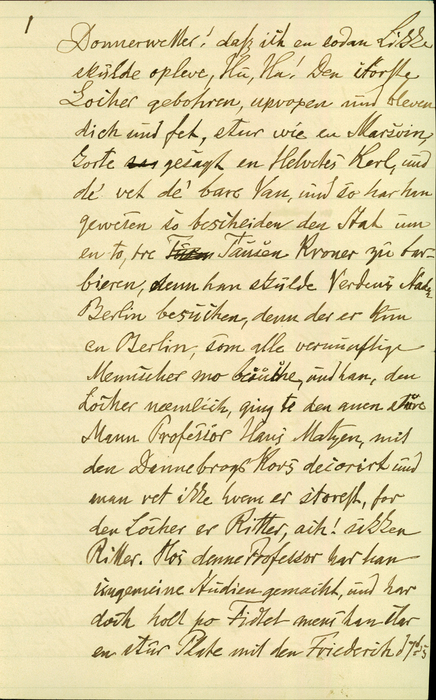 1
Donnerwetter! daß ich en sodan Likke
skulde opleve, Hu, Ha! Den störste
Locher gebohren, upvoxen und bleven
dick und fet, stur wie en Marsvin,
Korte gesagt en Helvetes Kerl, und
dé vet dé bare Van, und so har han
gewesen so bescheiden den Stat um
en to, tre Tausen Kroner zu bar-
bieren, denn han skulde Verdens
Berlin besuchen, denn der er kun
en Berlin, som alle vernunftige
Menscher mo besuche, und han, den
Locher næmlich, ging to den anen store
Mann Professor Hans Matzen, mit
den Dannebrogs Kors decorirt und
man vet ikke hvem er storest, for
den Locher er Ritter, ach! sikken
Ritter. Hos denne Professor har han
ungemeine Studien gemacht, und har
doch holt po Fidlet mens han
en stur Plate mit den Friederik d 7